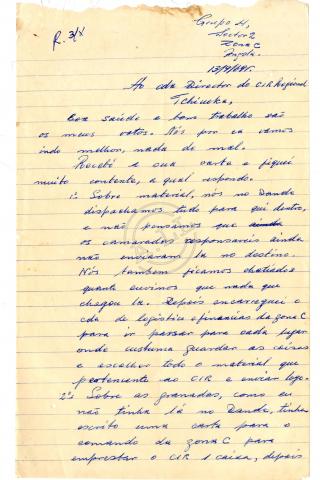 R. 3/X
Grupo H,
Sector 2
Zona C
Angola.
13/9/69.
Ao cda Director do CIR Regional
Tchiweka,
Boa saúde e bom trabalho são
os meus votos. Nós por cá vamos
indo melhor, nada de mal.
Recebi a sua carta e fiquei
muito contente, a qual respondo.
1º Sobre material, nós no Dande
despachamos tudo para qui dentro,
e não pensamos que
os camaradas responsaveis ainda
não enviaram lá no destino.
Nós tambem ficamos chatiados
quanto ouvimos que nada que
chegou lá. Depois encarreguei o
cda de logistica e finanças da zona C
para ir passar para cada lugar
onde custuma guardar as coisas
e escolher todo o material que
pertencente ao CIR e enviar logo.
2º Sobre as granadas, como eu
não tinha lá no Dande, tinha
escrito uma carta para o
comando da zona C para
emprestar o CIR 1 caixa, depois